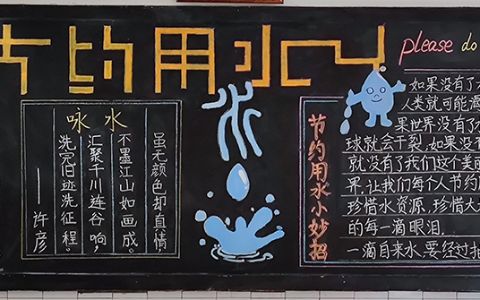 节约用水
please do
咏水
虽无颜色却直情，
不墨江山如画成。
汇聚千川连谷响，
洗完旧迹洗征程。
——许彦
水
节约用水小妙招
如果没有了
人类就可能
果世界没有了
球就会干裂，如果没
就没有了我们这个美
界，让我们每个人节约
珍惜水资源，珍惜大
的每一滴眼泪。
一滴自来水，要经过